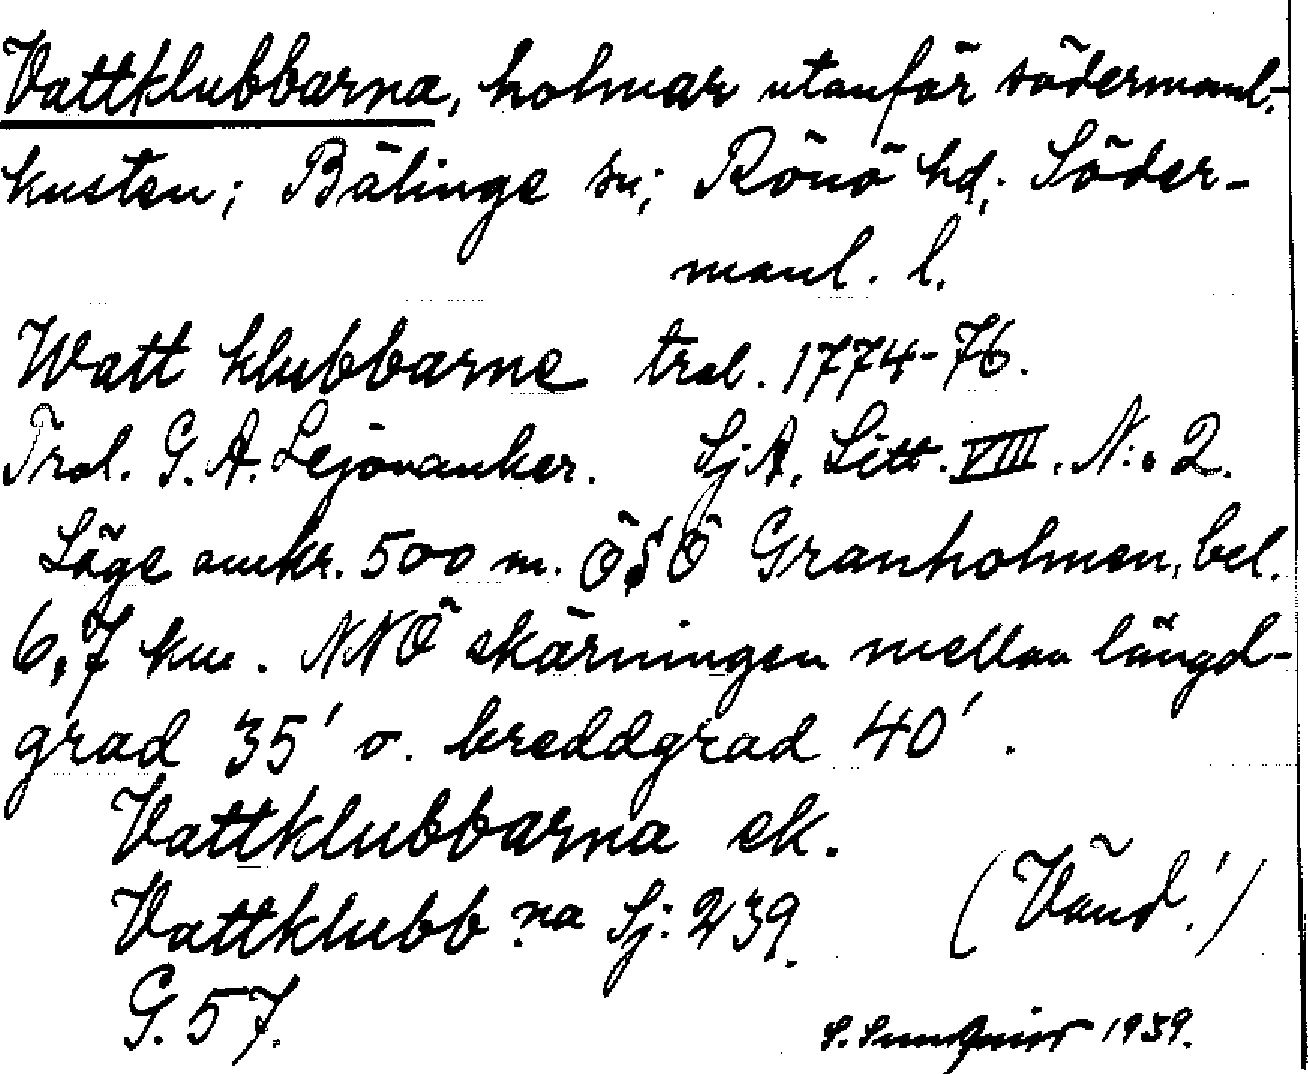 Vattklubbarna, holmar utanför södermanl.-
kusten; Bälinge sn; Rönö hd; Söder-
manl. l.
Watt klubbarne trol. 1774-76.
Trol. G. A. Lejonanker. SjA. Litt. VIII. N:o 2.
Läge omkr. 500 m. ÖSÖ Granholmen, bel.
6,7 km. NNÖ skärningen mellan längd-
grad 35' o. breddgrad 40'.
Vattklubbarna ek.
Vattklubb:na Sj: 239.
(Vänd!)
G. 57.
1939.